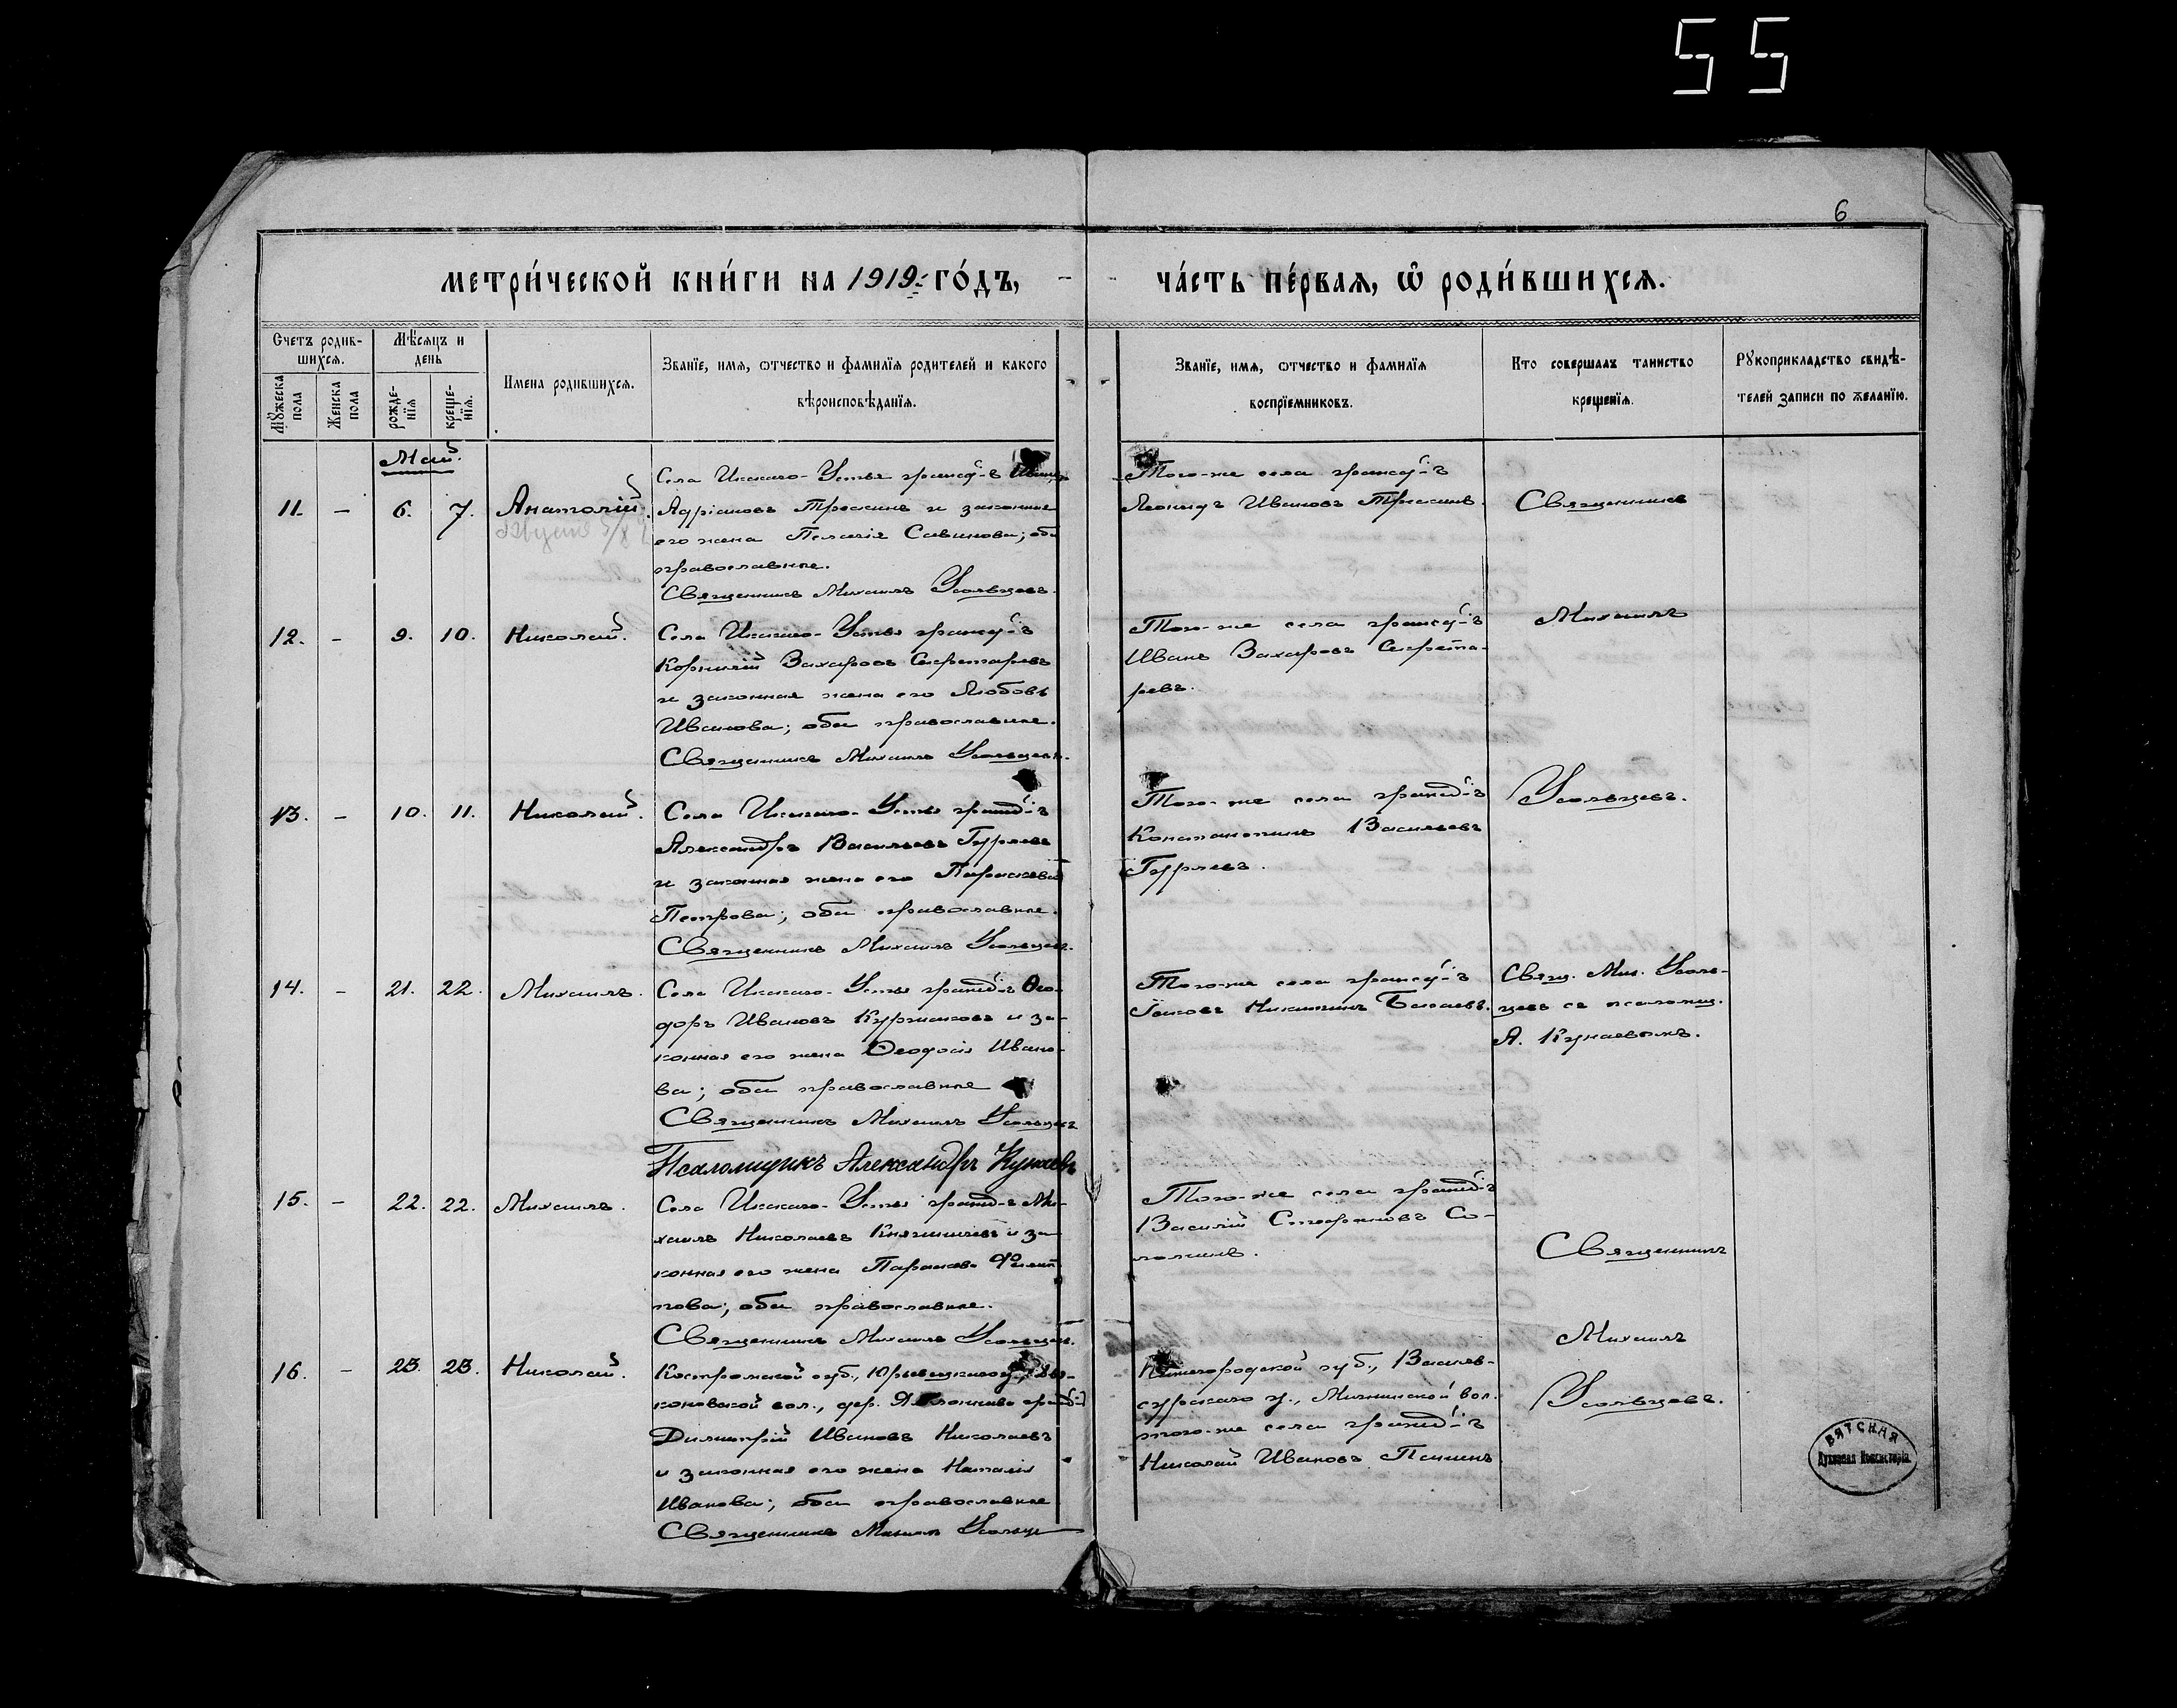 55
6
МЕТРИ́ЧЕСКОЙ КНИ́ГИ НА 1919 ГО́ДЪ,
ЧА́СТЬ ПЕ́РВАЯ, Ѡ РОДИ́ВШИХСЯ.
Счетъ родив-
шихся.
Мѣсяцъ и
день
Мужеска
пола
Женска
пола
рожде-
нія
креще-
нія.
Имена родившихся.
Званіе, имя, отчество и фамилія родителей и какого
вѣроисповѣданія.
Званіе, имя, отчество и фамилія
воспріемниковъ.
Кто совершалъ таинство
крещенія.
Рукоприкладство свидѣ-
телей записи по желанію.
Май.
11. - 6. 7. Анатолій.
Села Икскаго-Устья гражд-ъ Иванъ
Адріановъ и законная
его жена Пелагія Савинова; оба
православные.
Священникъ Михаилъ Усольцевъ.
Того-же села гражд-ъ
Леонидъ Ивановъ
Священникъ
12. - 9. 10. Николай.
Села Икскаго-Устья гражд-ъ
Корнилій Захаровъ Секретаревъ
и законная жена его Любовь
Иванова; оба православные.
Священникъ Михаилъ Усольцевъ.
Того-же села гражд-ъ
Иванъ Захаровъ Секрета-
ревъ.
Михаилъ
13. - 10. 11. Николай.
Села Икскаго-Устья гражд-ъ
Александръ Васильевъ Гурлевъ
и законная жена его Параскева
Петрова; оба православные.
Священникъ Михаилъ Усольцевъ.
Того-же села гражд-ъ
Константинъ Васильевъ
Гурлевъ.
Усольцевъ.
14. - 21. 22. Михаилъ.
Села Икскаго-Устья гражд-ъ Ѳео-
доръ Ивановъ и за-
конная его жена Ѳеодосія Ивано-
ва; оба православные
Священникъ Михаилъ Усольцевъ
Псаломщикъ Александръ Кунаевъ
Того-же села гражд-ъ
Іаковъ Никитинъ
Свящ. Мих. Усоль-
цевъ съ псаломщ.
А. Кунаевымъ.
15. - 22. 22. Михаилъ.
Села Икскаго-Устья гражд-ъ Ми-
хаилъ Николаевъ и за-
конная его жена Параскева Филип-
пова; оба православные.
Священникъ Михаилъ Усольцевъ.
Того-же села гражд-ъ
Василій Стефановъ
Священникъ
16. - 23. 23. Николай.
Костромской губ., Юрьевецкаго у.,
вол., дер. гражд-ъ
Димитрій Ивановъ Николаевъ
и законная его жена Наталія
Иванова; оба православные
Священникъ Михаилъ Усольце
Нижегородской губ., Василь-
сурскаго у., вол.
того-же села гражд-ъ
Николай Ивановъ
Михаилъ
Усольцевъ.
ВЯТСКАЯ
Духовная Консисторія